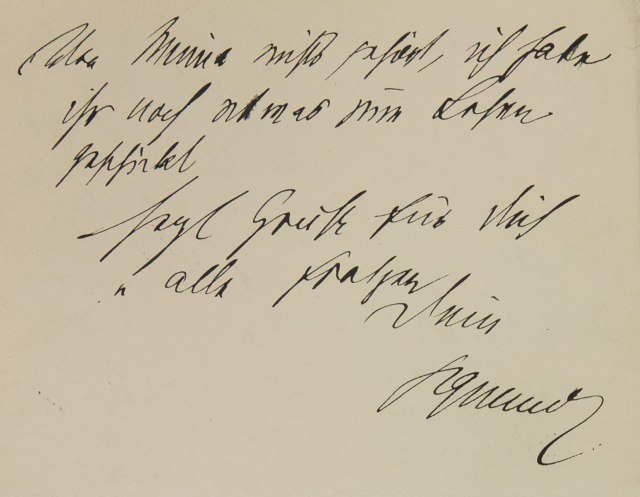 Von Minna nichts gehört, ich habe
ihr noch etwas zum Lesen
geschickt
herzl Grüße für Dich
u alle
Dein
Sigmund